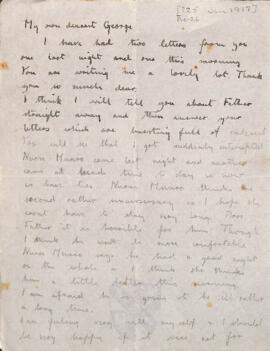 [? 25 Jan 1917]
My own dearest George
I have had two letters from you
one last night and one this morning
You are writing me a lovely lot. Thank
you so much dear.
I think I will tell you about Father
straight away and then answer your
letters which are inserting full of
You will see that I got suddenly interrupted
Nurse Munro came last night and another
came at lunch time to day so now
we have two. Nurse Munro thinks the
second rather unnecessary so I hope she
wont have to stay very long. Poor
Father it is horrible for him. Though
I think he must be more comfortable
Nurse Munro says he had a good night
on the whole & I think she thinks
him a little better this morning
I am afraid he is going to be ill rather
a long time.
I am feeling very well myself & I should
be very happy if it was not for